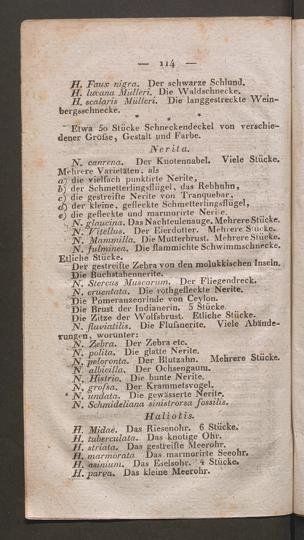 — 114 —
H. Faux nigra. Der schwarze Schlund.
H. lucana Mülleri. Die Waldschnecke.
H. scalaris Mülleri. Die langgestreckte Wein-
bergsschnecke.
* * *
Etwa 50 Stücke Schneckendeckel von verschie-
dener Gröſse, Gestalt und Farbe.
Nerita.
N. canrena. Der Knotennabel. Viele Stücke.
Mehrere Varietäten. als
a) die vielfach punktirte Nerite,
b) der Schmetterlingsflügel, das Rebhuhn,
c) die gestreifte Nerite von Tranquebar,
d) der kleine, gefleckte Schmetterlingsflügel,
e) die gefleckte und marmorirte Nerite.
N. glaucina. Das Nachteulenauge. Mehrere Stücke.
N. Vitellus. Der Eierdotter. Mehrere Stücke.
N. Mammilla. Die Mutterbrust. Mehrere Stücke.
N. fulminea. Die flammichte Schwimmschnecke.
Etliche Stücke.
Der gestreifte Zebra von den molukkischen Inseln.
Die Buchstabennerite.
N. Stercus Muscarum. Der Fliegendreck.
N. cruentata. Die rothgefleckte Nerite.
Die Pomeranzenrinde von Ceylon.
Die Brust der Indianerin. 5 Stücke
Die Zitze der Wolfsbrust. Etliche Stücke.
N. fluviatilis. Die Fluſsnerite. Viele Abände-
rungen, worunter:
N. Zebra. Der Zebra etc.
N. polita. Die glatte Nerite.
N. peloronta. Der Blutzahn. Mehrere Stücke.
N. albicilla. Der Ochsengaum.
N. Histrio. Die bunte Nerite.
N. grossa. Der Krammetsvogel.
N. undata. Die gewässerte Nerite.
N. Schmideliana sinistrorsa fossilis.
Haliotis.
H. Midae. Das Riesenohr. 6 Stücke.
H. tuberculata. Das knotige Ohr.
H. striata. Das gestreifte Meerohr.
H. marmorata. Das marmorirte Seeohr.
H. asinium. Das Eselsohr. 4 Stücke.
H. parva. Das kleine Meerohr.